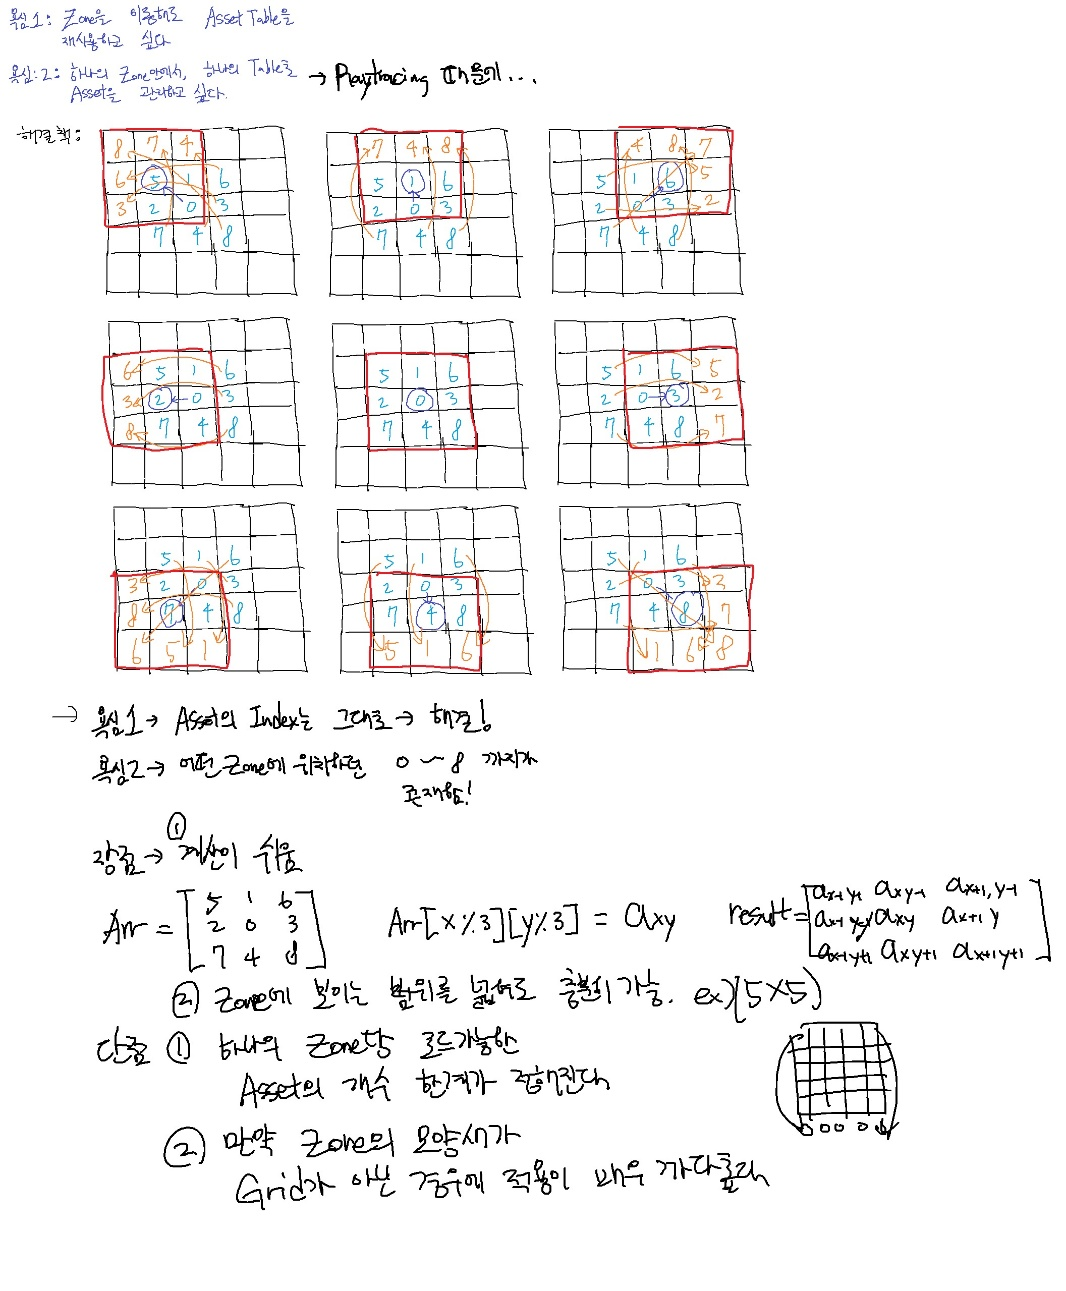 욕심1: Zone을 이동해도 Asset Table을
재사용하고 싶다
욕심:2: 하나의 Zone안에서, 하나의 Table로
Asset을 관리하고 싶다.
→ Raytracing 때문에...
해결책:
8 7 4
6 5 1 6
3 2 0 3
7 4 8
7 4 8
5 1 6
2 0 3
7 4 8
4 8 7
5 1 6 5
2 0 3 2
7 4 8
6 5 1 6
3 2 0 3
8 7 4 8
5 1 6
2 0 3
7 4 8
5 1 6 5
2 0 3 2
7 4 8 7
5 1 6
3 2 0 3
8 7 4 8
6 5 1
5 1 6
2 0 3
7 4 8
5 1 6
5 1 6
2 0 3 2
7 4 8 7
1 6 8
→ 욕심1 → Asset의 Index는 그대로 → 해결!
욕심2 → 어떤 Zone에 위치하던 0 ~ 8 까지가
존재함!
장점 → ① 계산이 쉬움
Arr = [5 1 6
2 0 3
7 4 8]
Arr[x%3][y%3] = axy
result = [ax-1y-1 axy-1 ax+1,y-1
ax-1y axy ax+1y
ax-1y+1 axy+1 ax+1y+1]
② Zone에 보이는 범위를 넓혀도 충분히 가능. ex)(5×5)
단점 ① 하나의 Zone당 로드가능한
Asset의 개수 한계가 정해진다
② 만약 Zone의 모양새가
Grid가 아닌 경우에 적용이 매우 까다롭다